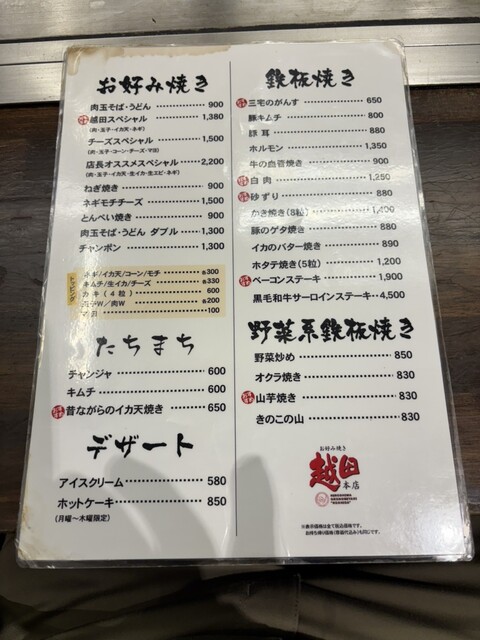 お好み焼き
肉玉そば・うどん 900
越田スペシャル 1,380
(肉・玉子・イカ天・ネギ)
チーズスペシャル 1,500
(肉・玉子・コーン・チーズ・マヨ)
店長オススメスペシャル 2,200
(肉・玉子・イカ天・生イカ・生エビ・ネギ)
ねぎ焼き 900
ネギモチチーズ 1,500
とんぺい焼き 900
肉玉そば・うどん ダブル 1,300
チャンポン 1,300
トッピング
ネギ/イカ天/コーン/モチ 各300
キムチ/生イカ/チーズ 各330
カキ(4粒) 600
玉子W/肉W 各200
マヨ 100
たちまち
チャンジャ 600
キムチ 600
昔ながらのイカ天焼き 650
デザート
アイスクリーム 580
ホットケーキ 850
(月曜〜木曜限定)
鉄板焼き
三宅のがんす 650
豚キムチ 800
豚耳 880
ホルモン 1,350
牛の血管焼き 900
白肉 1,250
砂ずり 880
かき焼き(8粒) 1,400
豚のゲタ焼き 880
イカのバター焼き 890
ホタテ焼き(5粒) 1,200
ベーコンステーキ 1,900
黒毛和牛サーロインステーキ 4,500
野菜系鉄板焼き
野菜炒め 850
オクラ焼き 830
山芋焼き 830
きのこの山 830
お好み焼き
越田
本店
HIROSHIMA
OKONOMIYAKI
"KOSHIDA"
※表示価格は全て税込価格です。